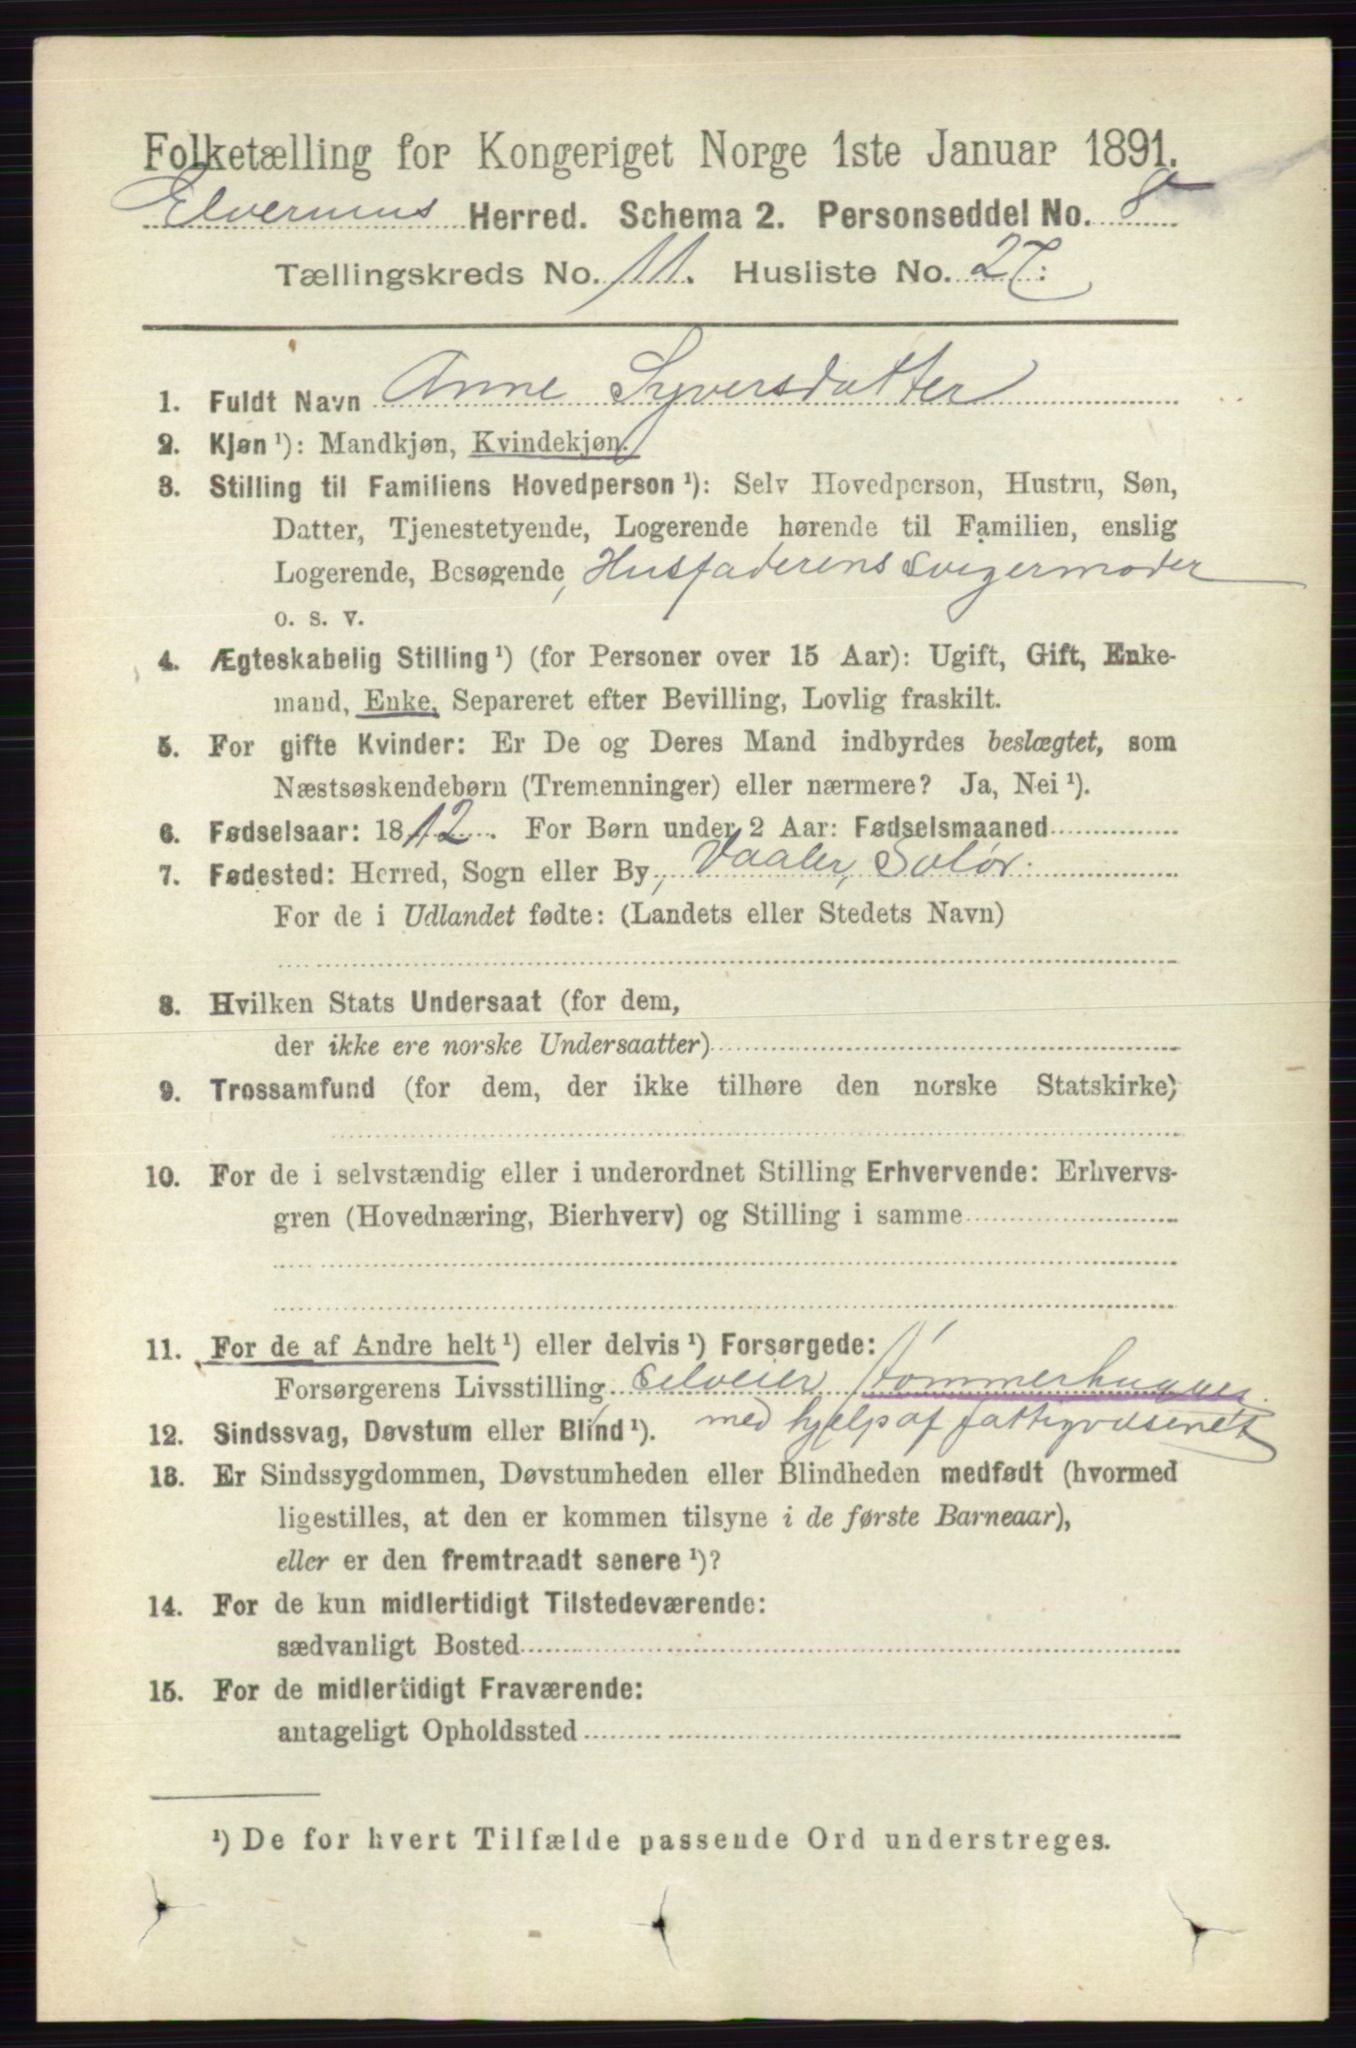 Folketælling for Kongeriget Norge 1ste Januar 1891.
Elverums Herred. Schema 2. Personseddel No. 8
Tællingskreds No. 11. Husliste No. 27.
1. Fuldt Navn Anne Syversdatter
2. Kjøn¹): Mandkjøn, Kvindekjøn.
3. Stilling til Familiens Hovedperson¹): Selv Hovedperson, Hustru, Søn,
Datter, Tjenestetyende, Logerende hørende til Familien, enslig
Logerende, Besøgende, Husfaderens Svigermoder
o. s. v.
4. Ægteskabelig Stilling¹) (for Personer over 15 Aar): Ugift, Gift, Enke-
mand, Enke, Separeret efter Bevilling, Lovlig fraskilt.
5. For gifte Kvinder: Er De og Deres Mand indbyrdes beslægtet, som
Næstsøskendebørn (Tremenninger) eller nærmere? Ja, Nei¹).
6. Fødselsaar: 1812. For Børn under 2 Aar: Fødselsmaaned
7. Fødested: Herred, Sogn eller By, Vaaler, Solør.
For de i Udlandet fødte: (Landets eller Stedets Navn)
8. Hvilken Stats Undersaat (for dem,
der ikke ere norske Undersaatter)
9. Trossamfund (for dem, der ikke tilhøre den norske Statskirke)
10. For de i selvstændig eller i underordnet Stilling Erhvervende: Erhvervs-
gren (Hovednæring, Bierhverv) og Stilling i samme
11. For de af Andre helt¹) eller delvis¹) Forsørgede:
Forsørgerens Livsstilling, Selveier Tømmerhugger
med hjelp af fattigvæsenet
12. Sindssvag, Døvstum eller Blind¹).
13. Er Sindssygdommen, Døvstumheden eller Blindheden medfødt (hvormed
ligestilles, at den er kommen tilsyne i de første Barneaar),
eller er den fremtraadt senere¹)?
14. For de kun midlertidigt Tilstedeværende:
sædvanligt Bosted
15. For de midlertidigt Fraværende:
antageligt Opholdssted
¹) De for hvert Tilfælde passende Ord understreges.